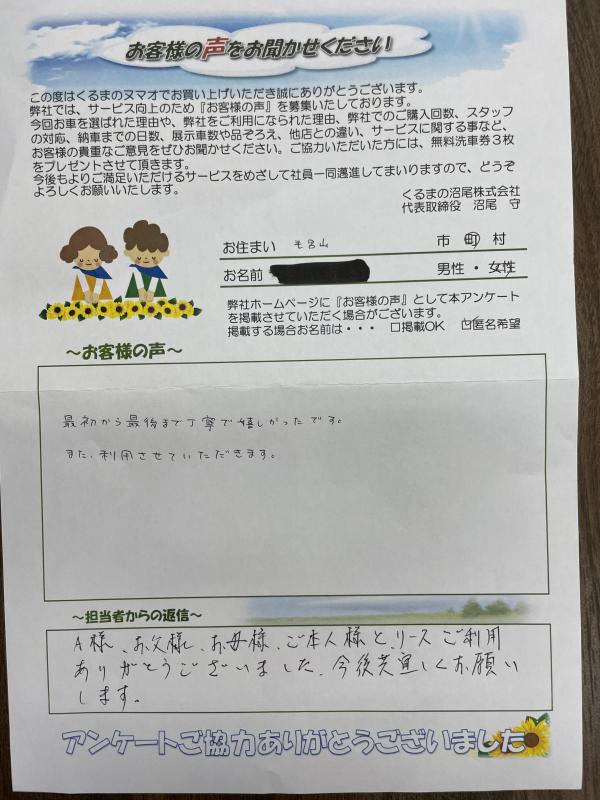 お客様の声をお聞かせください
この度はくるまのヌマオでお買い上げいただき誠にありがとうございます。
弊社では、サービス向上のため『お客様の声』を募集いたしております。
今回お車を選ばれた理由や、弊社をご利用になられた理由、弊社でのご購入回数、スタッフ
の対応、納車までの日数、展示車数や品ぞろえ、他店との違い、サービスに関する事など、
お客様の貴重なご意見をぜひお聞かせください。ご協力いただいた方には、無料洗車券3枚
をプレゼントさせて頂きます。
今後もよりご満足いただけるサービスをめざして社員一同邁進してまいりますので、どうぞ
よろしくお願いいたします。
くるまの沼尾株式会社
代表取締役 沼尾 守
お住まい 毛呂山 市 町 村
お名前 男性・女性
弊社ホームページに『お客様の声』として本アンケート
を掲載させていただく場合がございます。
掲載する場合お名前は・・・ □掲載OK ☑匿名希望
～お客様の声～
最初から最後まで丁寧で嬉しかったです。
また、利用させていただきます。
～担当者からの返信～
A様、お父様、お母様、ご本人様とリースご利用
ありがとうございました、今後共宜しくお願い
します。
アンケートご協力ありがとうございました